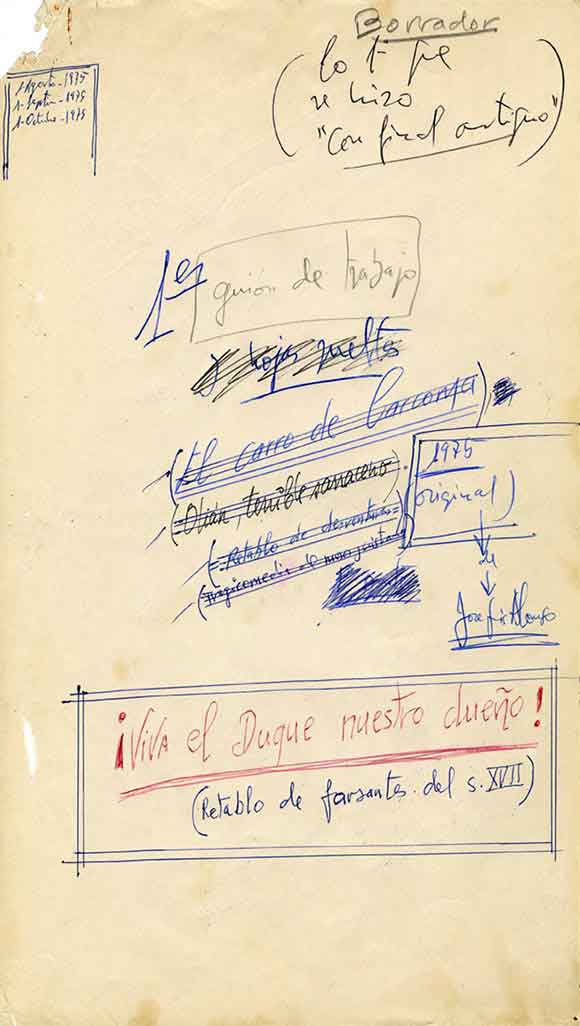 Borrador
(lo 1º
se hizo
"Con final antiguo")
1-Agosto-1975
1-Octubre-1975
1er guión de trabajo
y hojas sueltas
(El carro de Carcoma)
(Olian, terrible sarraceno)
1975
(original)
(=Retablo de desventuras=)
de
(Tragicomedia
José Luis Alonso
¡Viva el Duque nuestro dueño!
(Retablo de farsantes del s. XVII)